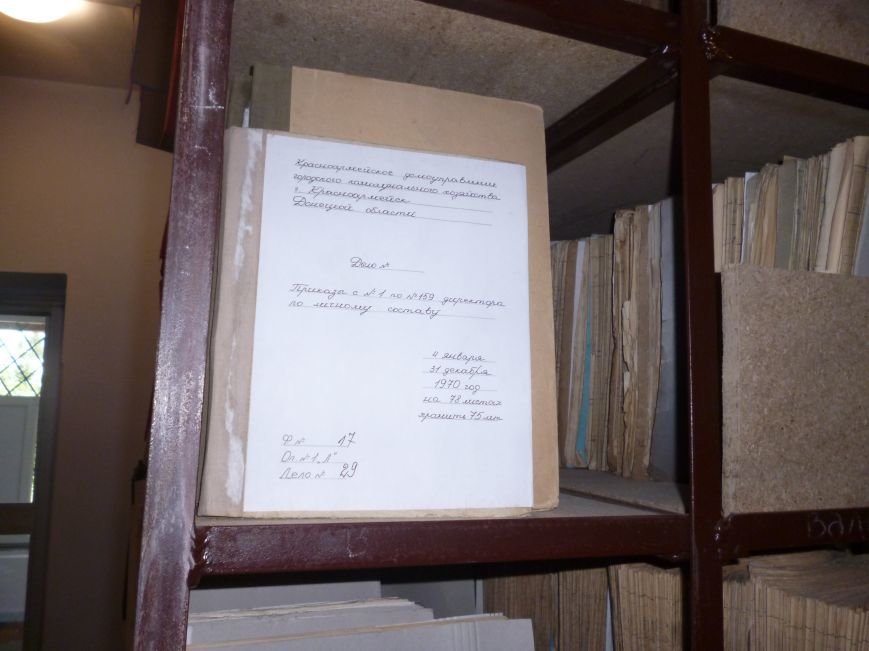 Красноармейское домоуправление
городского коммунального хозяйства
г. Красноармейск
Донецкой области
Дело №
Приказы с №1 по №159 директора
по личному составу
4 января
31 декабря
1970 год
на 78 листах
хранить 75 лет
Ф № 17
Оп. №1 „Л"
Дело № 29